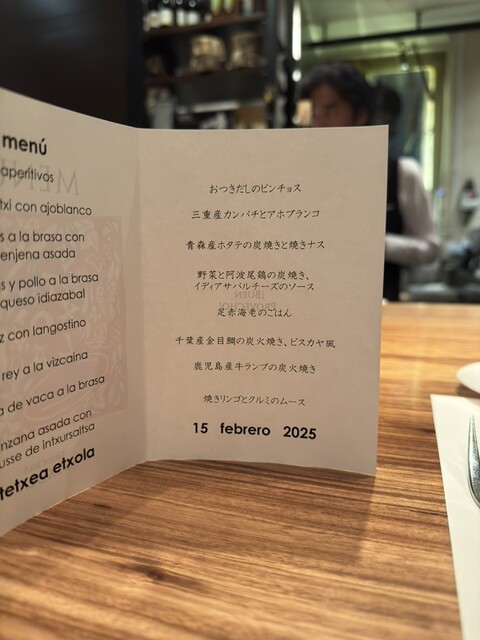 menú
aperitivos
txi con ajoblanco
s a la brasa con
enjena asada
s y pollo a la brasa
queso idiazabal
z con langostino
rey a la vizcaina
a de vaca a la brasa
nzana asada con
usse de intxursaltsa
tetxea etxola
おつきだしのピンチョス
三重産カンパチとアホブランコ
青森産ホタテの炭焼きと焼きナス
野菜と阿波尾鶏の炭焼き、
イディアサバルチーズのソース
足赤海老のごはん
千葉産金目鯛の炭火焼き、ビスカヤ風
鹿児島産牛ランプの炭火焼き
焼きリンゴとクルミのムース
15 febrero 2025
MENU
¡BUEN
PROVECHO!